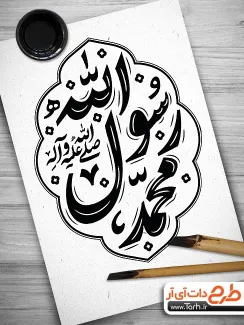 محمد رسول الله
صلی الله علیه و آله
طرح دات آی آر
www.Tarh.ir